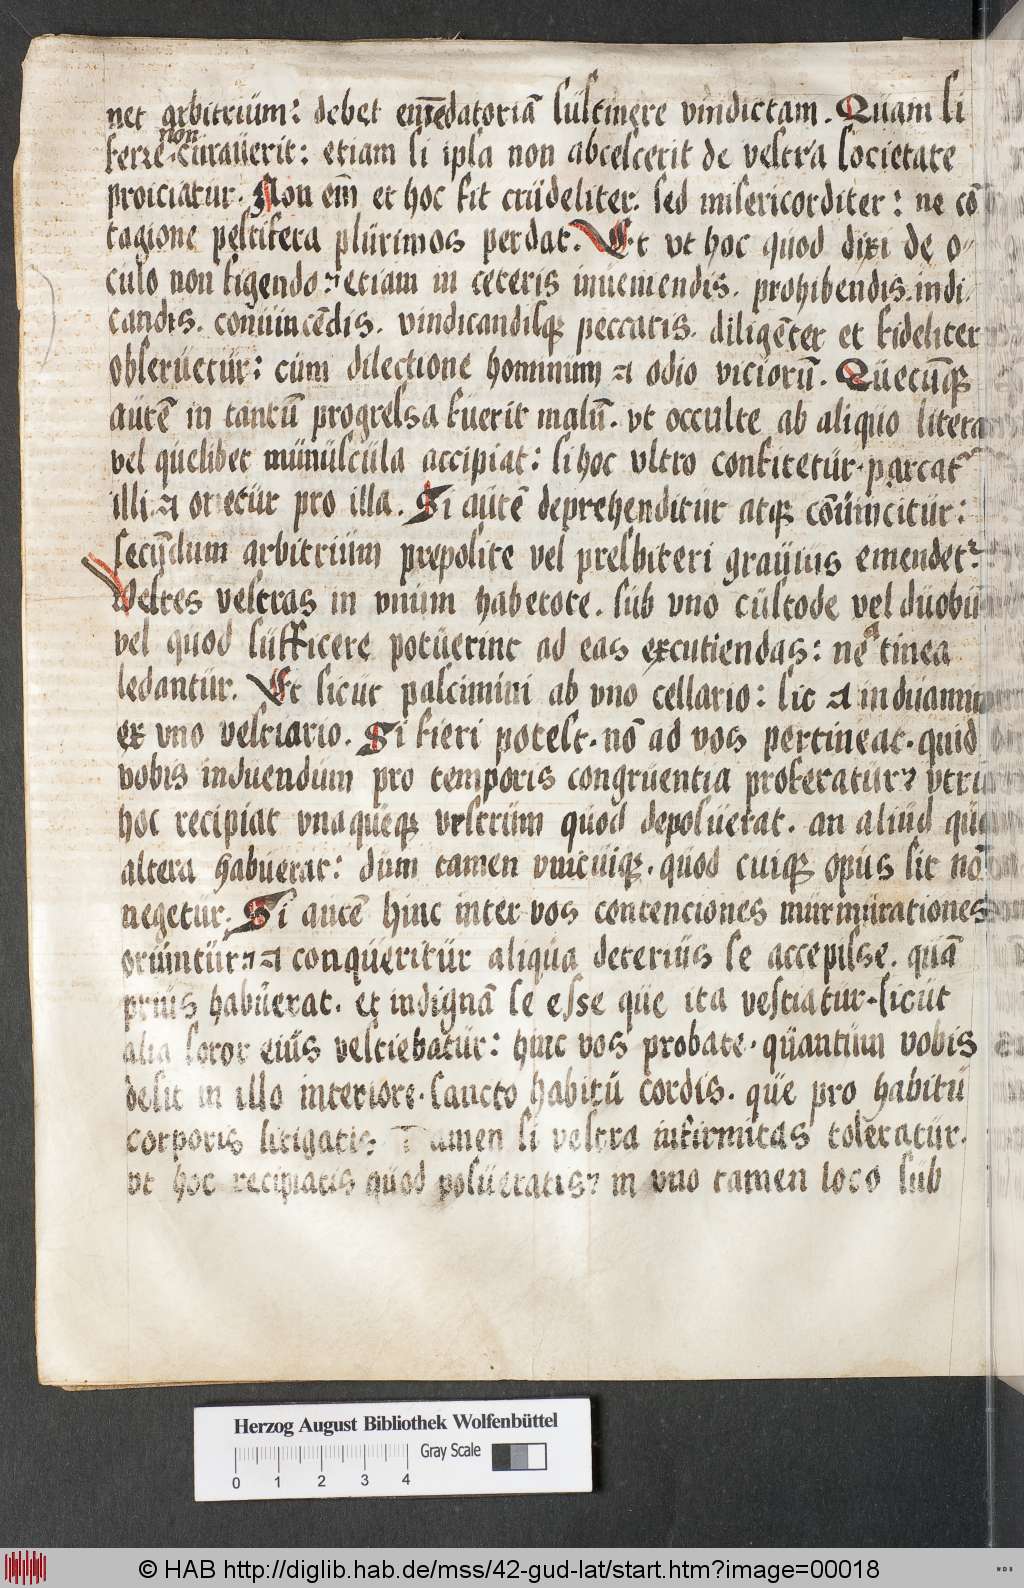 net arbitrium: debet em̄edatoriā sustinere vindictam. Quam si
ferre non curauerit: etiam si ipsa non abcescerit de vestra societate
proiciatur. Non em̄ et hoc fit crudeliter. sed misericorditer: ne cō
tagione pestifera plurimos perdat. Et vt hoc quod dixi de o⸗
culo non figendo ⁊ etiam in ceteris inueniendis. prohibendis. indi⸗
candis. conuincēdis. vindicandisqꝫ peccatis. diligēter et fideliter
obseruetur: cum dilectione hominum ⁊ odio viciorū. Quecūqꝫ
autē in tantū progressa fuerit malū. vt occulte ab aliquo litera
vel quelibet munuscula accipiat: si hoc vltro confitetur. parcat᷑
illi: ⁊ oretur pro illa. Si autē deprehenditur atqꝫ cōuincitur:
secundum arbitrium preposite vel presbiteri grauius emendet᷑
Vestes vestras in vnum habetote. sub vno custode vel duobꝰ
vel quod sufficere potuerint ad eas excutiendas: ne a tinea
ledantur. Et sicut pascimini ab vno cellario: sic ⁊ induamini
ex vno vestiario. Si fieri potest. nō ad vos pertineat. quid
vobis induendum pro temporis congruentia proferatur? vtru
hoc recipiat vnaqueqꝫ vestrum quod deposuerat. an aliud qu
altera habuerat: dum tamen vnicuiqꝫ. quod cuiqꝫ opus sit nō
negetur. Si autē hinc inter vos contenciones murmurationes
oriuntur ⁊ conqueritur aliqua deterius se accepisse. quā
prius habuerat. et indignā se esse que ita vestiatur. sicut
alia soror eius vestiebatur: hinc vos probate. quantum vobis
desit in illo interiore. sancto habitu cordis. que pro habitu
corporis litigatis: Tamen si vestra infirmitas toleratur.
vt hoc recipiatis quod posueratis? in vno tamen loco sub
Herzog August Bibliothek Wolfenbüttel
Gray Scale
0 1 2 3 4
© HAB http://diglib.hab.de/mss/42-gud-lat/start.htm?image=00018